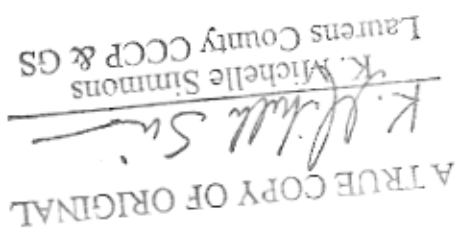 A TRUE COPY OF ORIGINAL
K. Michelle Sim
K. Michelle Simmons
Laurens County CCCP & GS